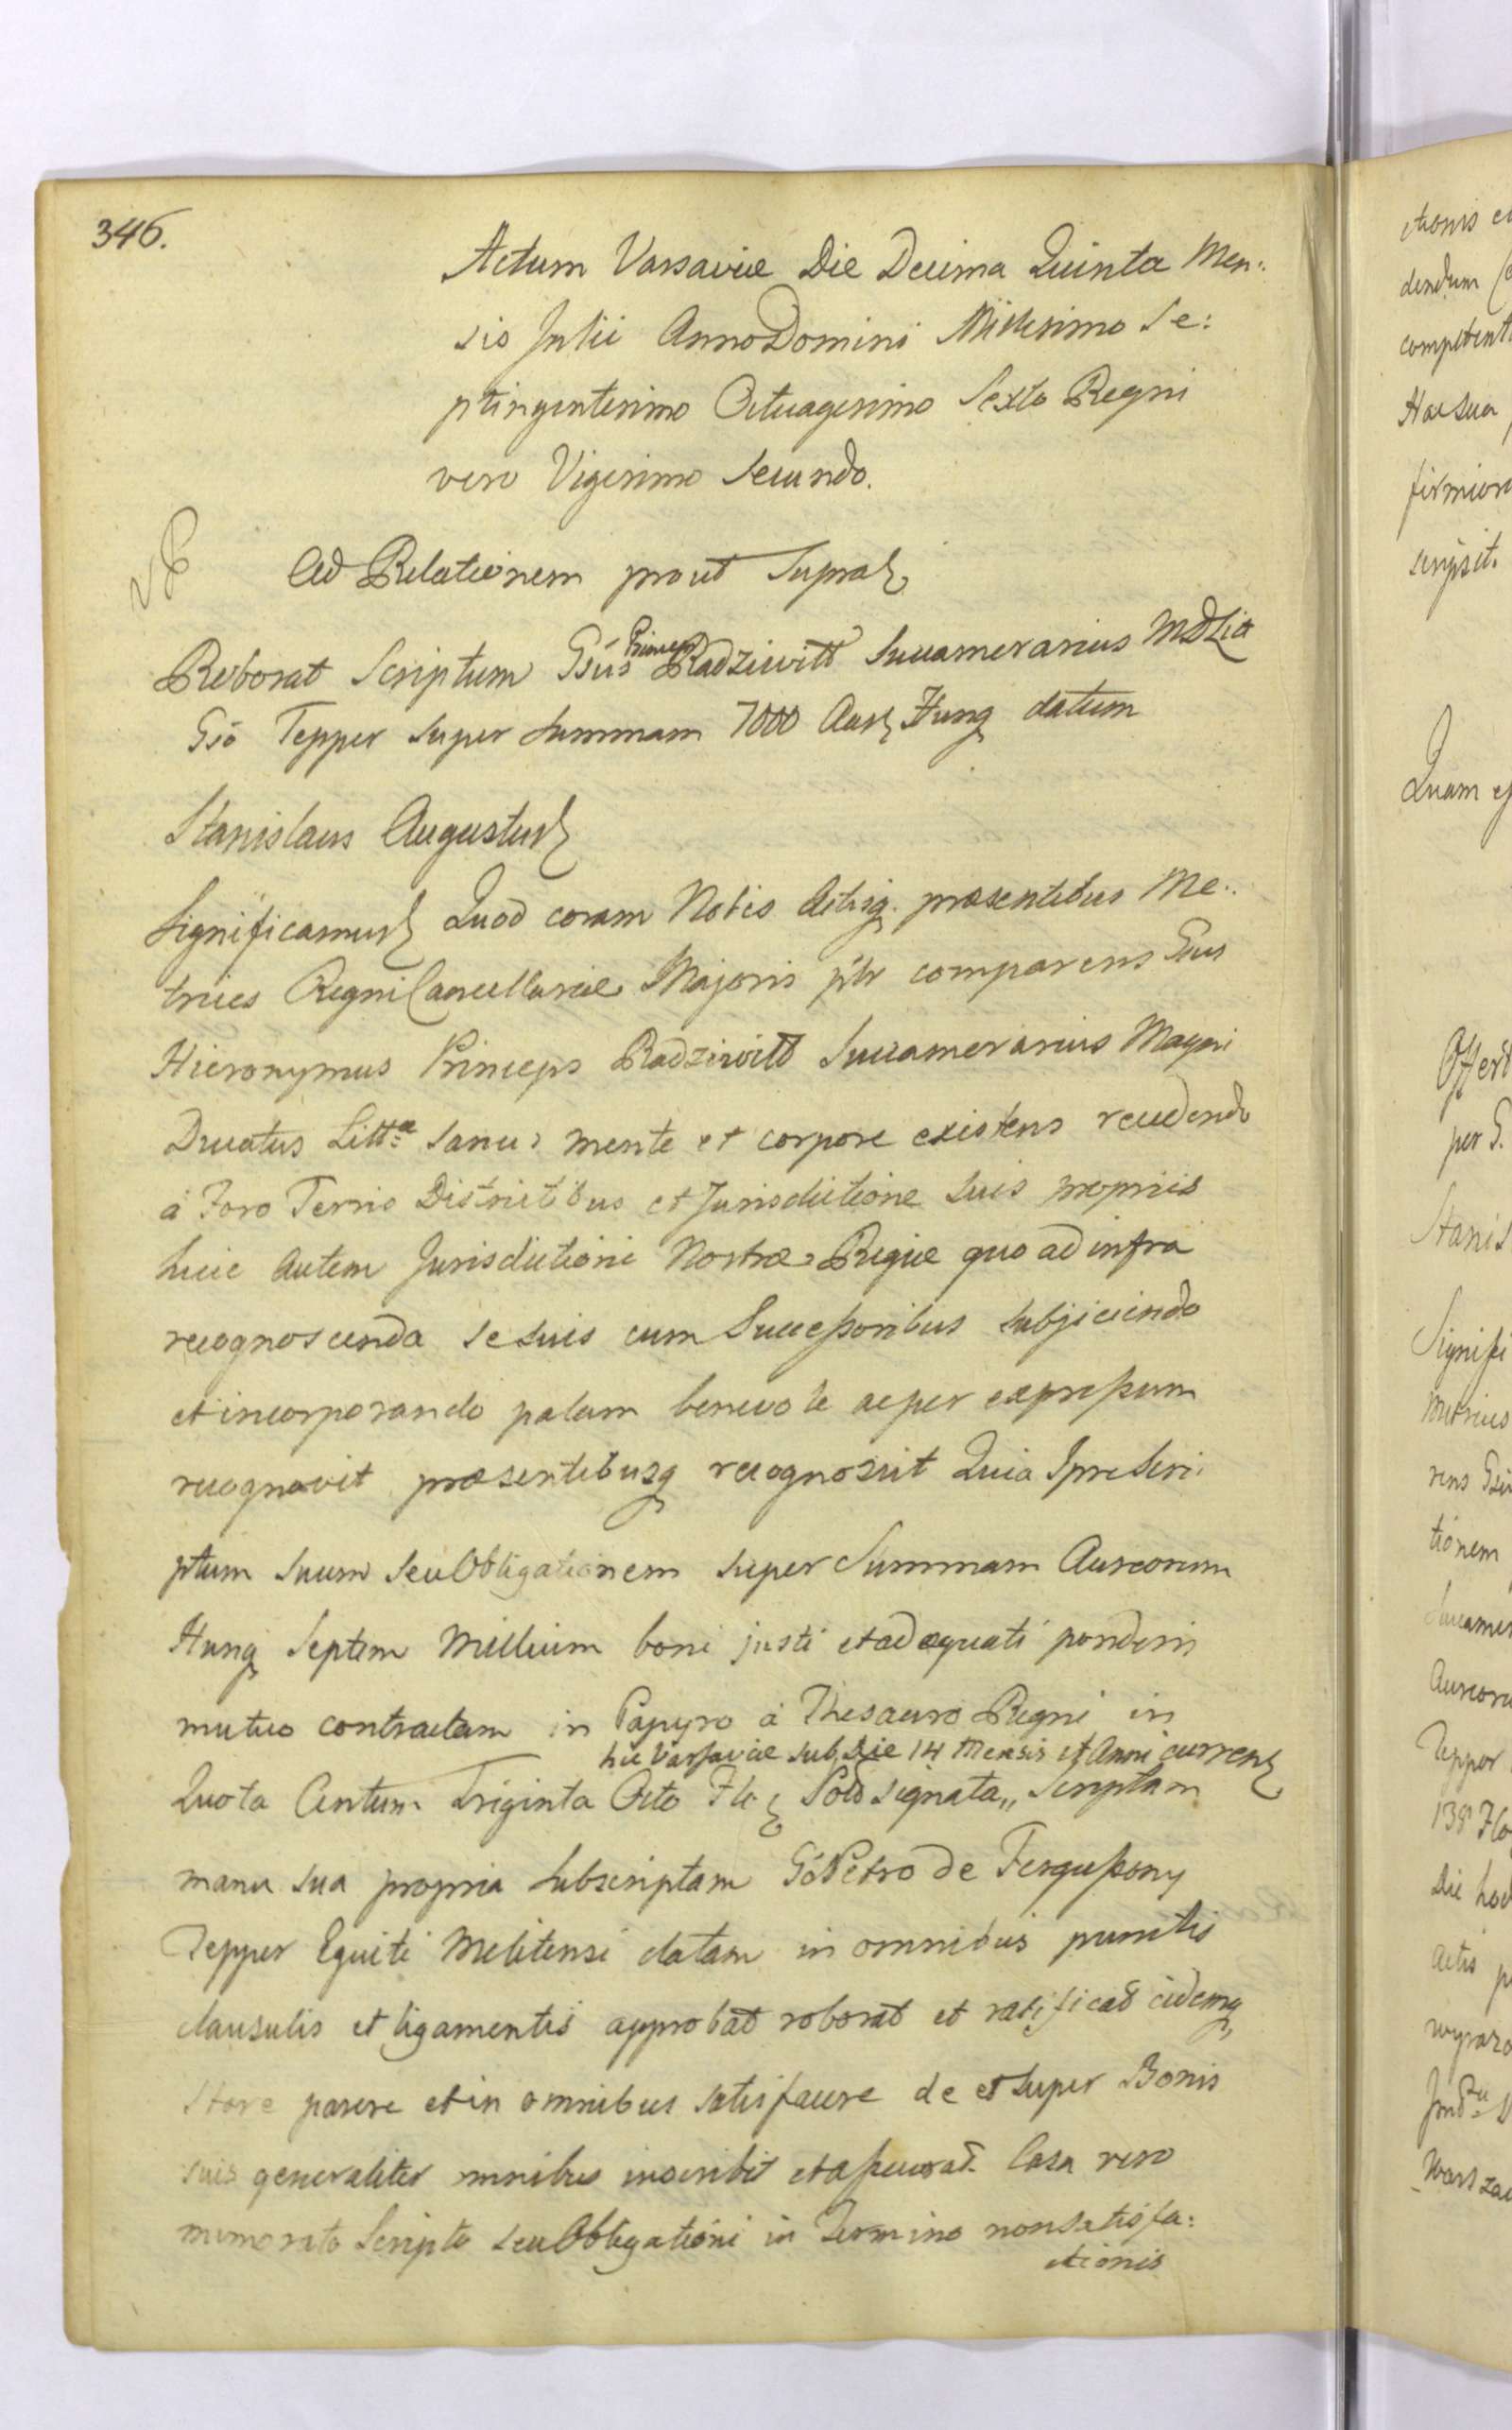 346.
Actum Varsaviæ Die Decima Quinta Men:
sis Julii Anno Domini Millesimo Se:
ptingentesimo Octuagesimo Sexto Regni
vero Vigesimo Secundo.
Ad Relationem prout Supra
Roborat Scriptum Gsús Princeps Radziwiłł Succamerarius MDLiæ
Gsó Tepper super summam 7000 Aur Hung datum
Stanislaus Augustus
Significamus Quod coram Nobis Actisq. præsentibus Me:
trices Regni Cancellariæ Majoris pʳtr comparens Gsus
Hieronymus Princeps Radziwiłł Succamerarius Magni
Ducatus Littæ sanus mente et corpore existens recedendo
à Foro Terris Districtibus et Jurisdictione suis propriis
huic autem Jurisdictioni Nostræ Regiæ quo ad infra
recognoscenda se suis cum Successoribus subjiciendo
et incorporando palam benevole ac per expressum
recognovit præsentibusq recognoscit Quia Ipse Scri:
ptum suum seu Obligationem super Summam Aureorum
Hung Septem Millium boni justi et adæquati ponderis
mutuo contractam in Papyro à Thesauro Regni in
hic Varsaviæ sub Die 14 Mensis et Anni curren
Quota Centum Triginta Octo Flo Pold signata,, Scriptam
manu sua propria subscriptam Gó Petro de Fergussony
Tepper Equiti Melitensi datam in omnibus punctis
clausulis et ligamentis approbat roborat et ratificat eidemq,
stare parere et in omnibus satisfacere de et super Bonis
suis generaliter omnibus inscribit et assecurat. Casu vero
memorato Scripto seu Obligationi in Termino non satisfa:
ctionis
ctionis
dendum
competent
Hac sua
firmior
scripsit.
Quam
Offert
per G.
Stanis
Signifi
Metrices
rens
tionem
Succamer
Aureoru
Tepper
138 Flo
Die hod
Actis
wyraz
Warszaw